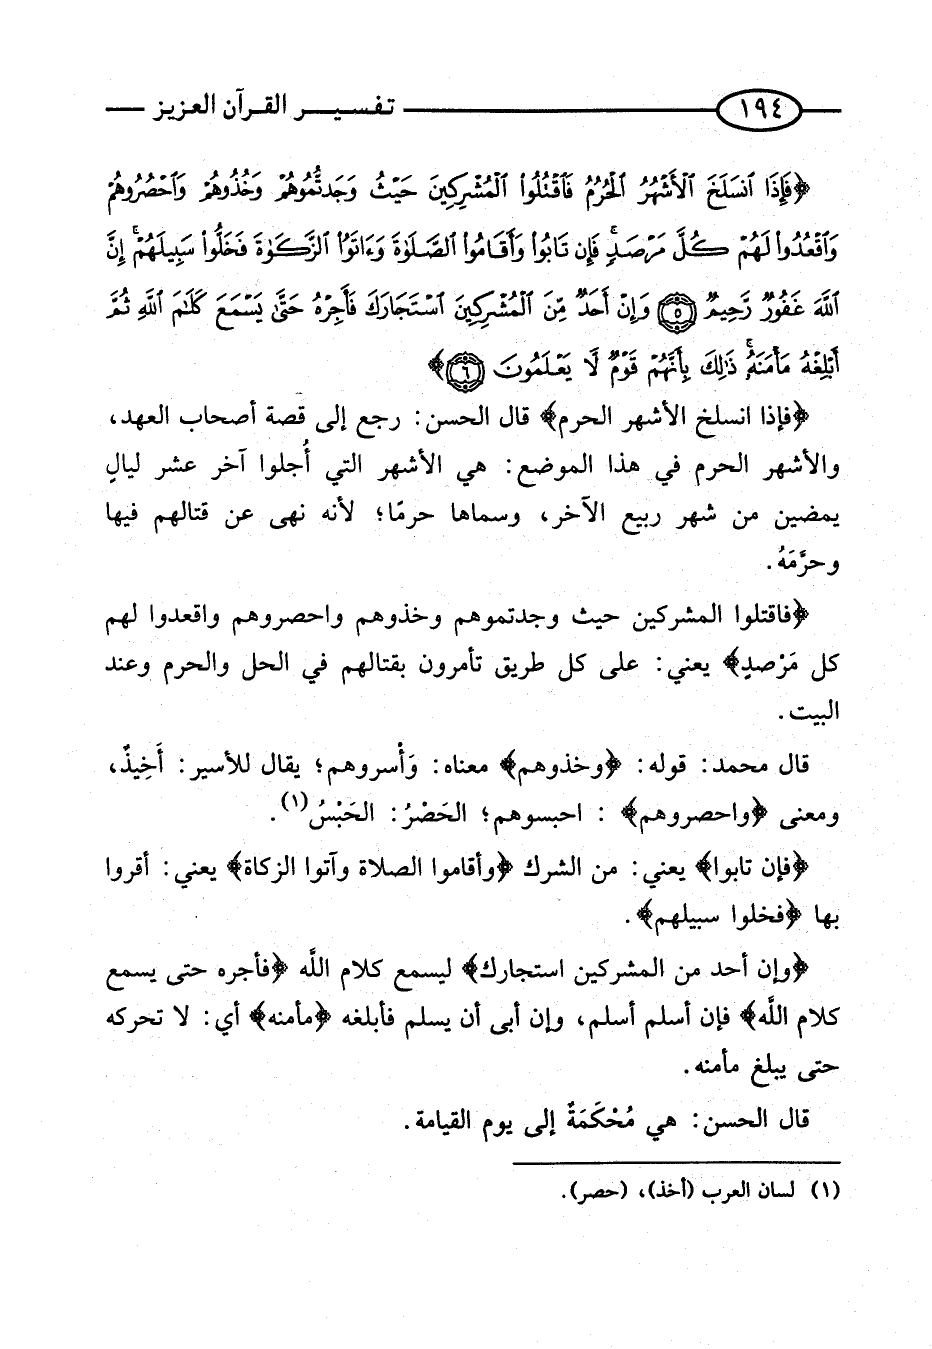 ١٩٤ تفسير القرآن العزيز
﴿فَإِذَا ٱنسَلَخَ ٱلْأَشْهُرُ ٱلْحُرُمُ فَٱقْتُلُوا۟ ٱلْمُشْرِكِينَ حَيْثُ وَجَدتُّمُوهُمْ وَخُذُوهُمْ وَٱحْصُرُوهُمْ
وَٱقْعُدُوا۟ لَهُمْ كُلَّ مَرْصَدٍۚ فَإِن تَابُوا۟ وَأَقَامُوا۟ ٱلصَّلَوٰةَ وَءَاتَوُا۟ ٱلزَّكَوٰةَ فَخَلُّوا۟ سَبِيلَهُمْۚ إِنَّ
ٱللَّهَ غَفُورٌ رَّحِيمٌ ٥ وَإِنْ أَحَدٌ مِّنَ ٱلْمُشْرِكِينَ ٱسْتَجَارَكَ فَأَجِرْهُ حَتَّىٰ يَسْمَعَ كَلَٰمَ ٱللَّهِ ثُمَّ
أَبْلِغْهُ مَأْمَنَهُۥۚ ذَٰلِكَ بِأَنَّهُمْ قَوْمٌ لَّا يَعْلَمُونَ ٦﴾
﴿فإذا انسلخ الأشهر الحرم﴾ قال الحسن: رجع إلى قصة أصحاب العهد،
والأشهر الحرم في هذا الموضع: هي الأشهر التي أُجلوا آخر عشر ليالٍ
يمضين من شهر ربيع الآخر، وسماها حرمًا؛ لأنه نهى عن قتالهم فيها
وحرَّمَهُ.
﴿فاقتلوا المشركين حيث وجدتموهم وخذوهم واحصروهم واقعدوا لهم
كل مَرْصدٍ﴾ يعني: على كل طريق تأمرون بقتالهم في الحل والحرم وعند
البيت.
قال محمد: قوله: ﴿وخذوهم﴾ معناه: وَأْسروهم؛ يقال للأسير: أَخِيذٌ،
ومعنى ﴿واحصروهم﴾ : احبسوهم؛ الحَصْرُ: الحَبْسُ(١).
﴿فإن تابوا﴾ يعني: من الشرك ﴿وأقاموا الصلاة وآتوا الزكاة﴾ يعني: أقروا
بها ﴿فخلوا سبيلهم﴾.
﴿وإن أحد من المشركين استجارك﴾ ليسمع كلام اللَّه ﴿فأجره حتى يسمع
كلام اللَّه﴾ فإن أسلم أسلم، وإن أبى أن يسلم فأبلغه ﴿مأمنه﴾ أي: لا تحركه
حتى يبلغ مأمنه.
قال الحسن: هي مُحْكَمَةٌ إلى يوم القيامة.
(١) لسان العرب (أخذ)، (حصر).